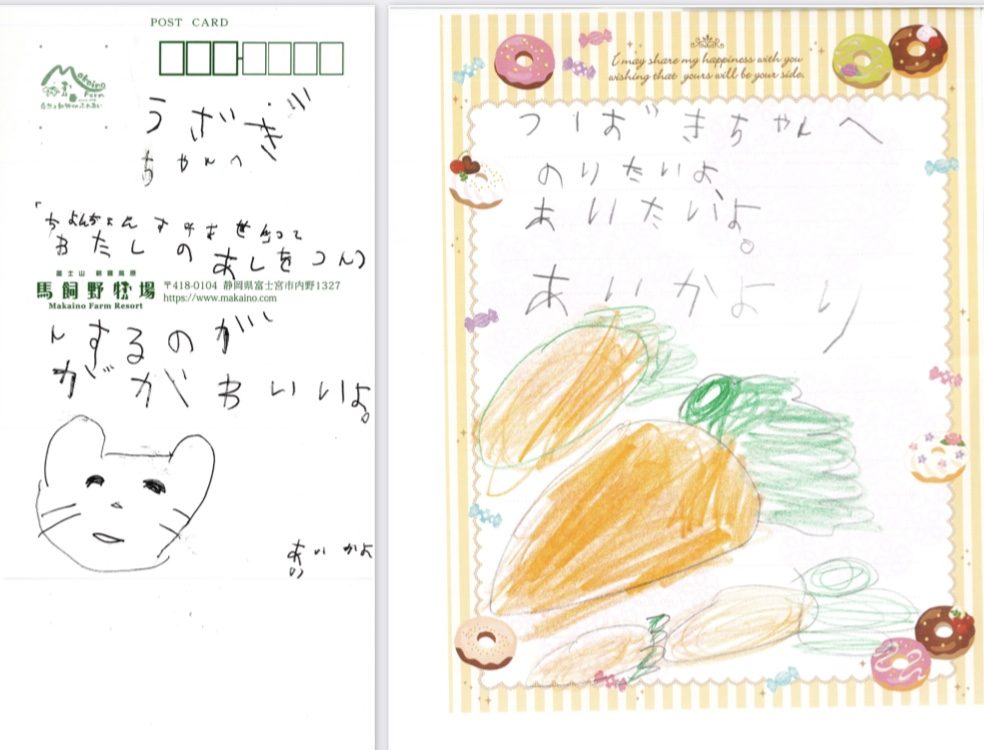 POST CARD
Makaino
Farm
うさぎ
ちゃんへ
「ちょんちょんすみませんって
わたしの
あしをつん
富士山 朝霧高原
馬飼野牧場
Makaino Farm Resort
〒418-0104 静岡県富士宮市内野1327
https://www.makaino.com
んするのが
がかわいいよ。
あいかよ
り
I may share my happiness with you
wishing that yours will be your side.
つばきちゃんへ
のりたいよ、
あいたいよ。
あいかより